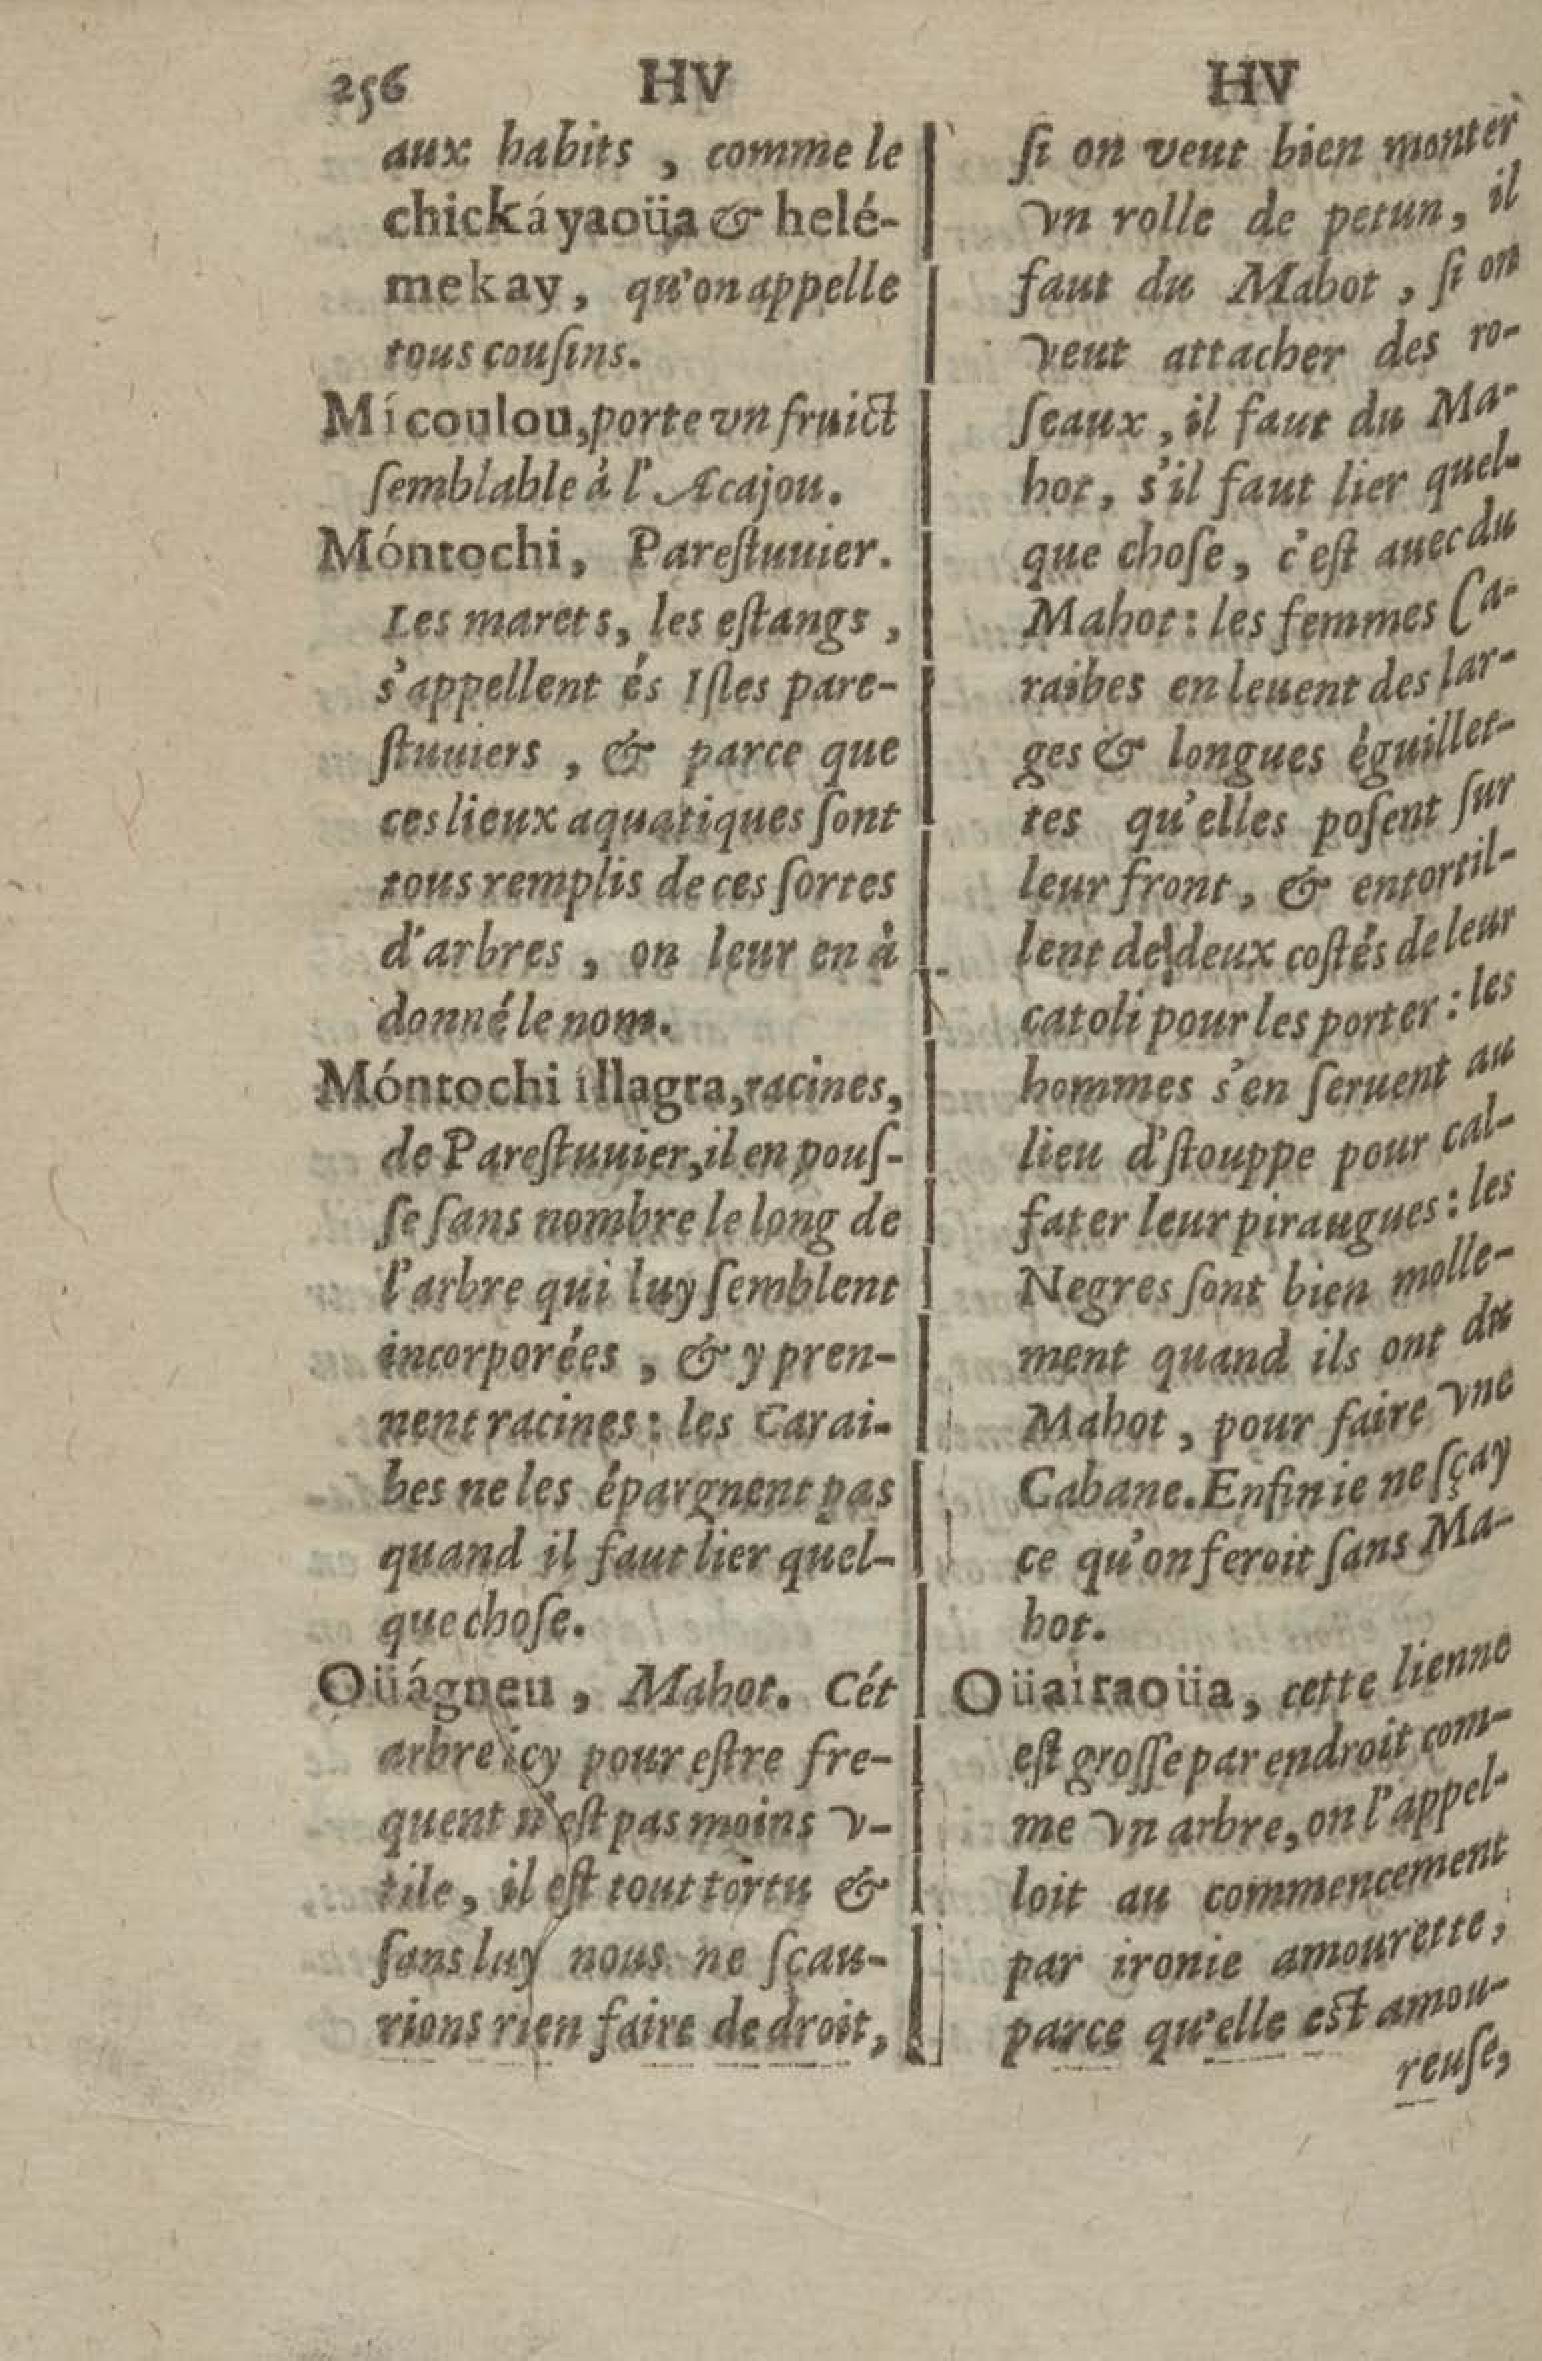 256 HV HV
aux habits, comme le
chickáyaoüa & helé-
mekay, qu'on appelle
tous couſins.
Mícoulou, porte vn fruict
ſemblable à l'Acajou.
Móntochi, Pareſtuuier.
Les marets, les eſtangs,
s'appellent és Iſles pare-
ſtuuiers, & parce que
ces lieux aquatiques ſont
tous remplis de ces ſortes
d'arbres, on leur en à
donné le nom.
Móntochi illagra, racines,
de Pareſtuuier, il en pouſ-
ſe ſans nombre le long de
l'arbre qui luy ſemblent
incorporées, & y pren-
nent racines : les Carai-
bes ne les épargnent pas
quand il faut lier quel-
que choſe.
Oüágneu, Mahot. Cét
arbre icy pour eſtre fre-
quent n'eſt pas moins v-
tile, il eſt tout tortu &
ſans luy nous ne ſçau-
rions rien faire de droit,
ſi on veut bien monter
vn rolle de petun, il
faut du Mahot, ſi on
veut attacher des ro-
ſeaux, il faut du Ma-
hot, s'il faut lier quel-
que choſe, c'eſt auec du
Mahot : les femmes Ca-
raibes en leuent des lar-
ges & longues éguillet-
tes qu'elles poſent ſur
leur front, & entortil-
lent de deux coſtés de leur
catoli pour les porter : les
hommes s'en ſeruent au
lieu d'ſtouppe pour cal-
fater leur piraugues : les
Negres ſont bien molle-
ment quand ils ont du
Mahot, pour faire vne
Cabane. Enfin ie ne ſçay
ce qu'on feroit ſans Ma-
hot.
Oüairaoüa, cette lienne
eſt groſſe par endroit com-
me vn arbre, on l'appel-
loit au commencement
par ironie amourette,
parce qu'elle est amou-
reuſe,